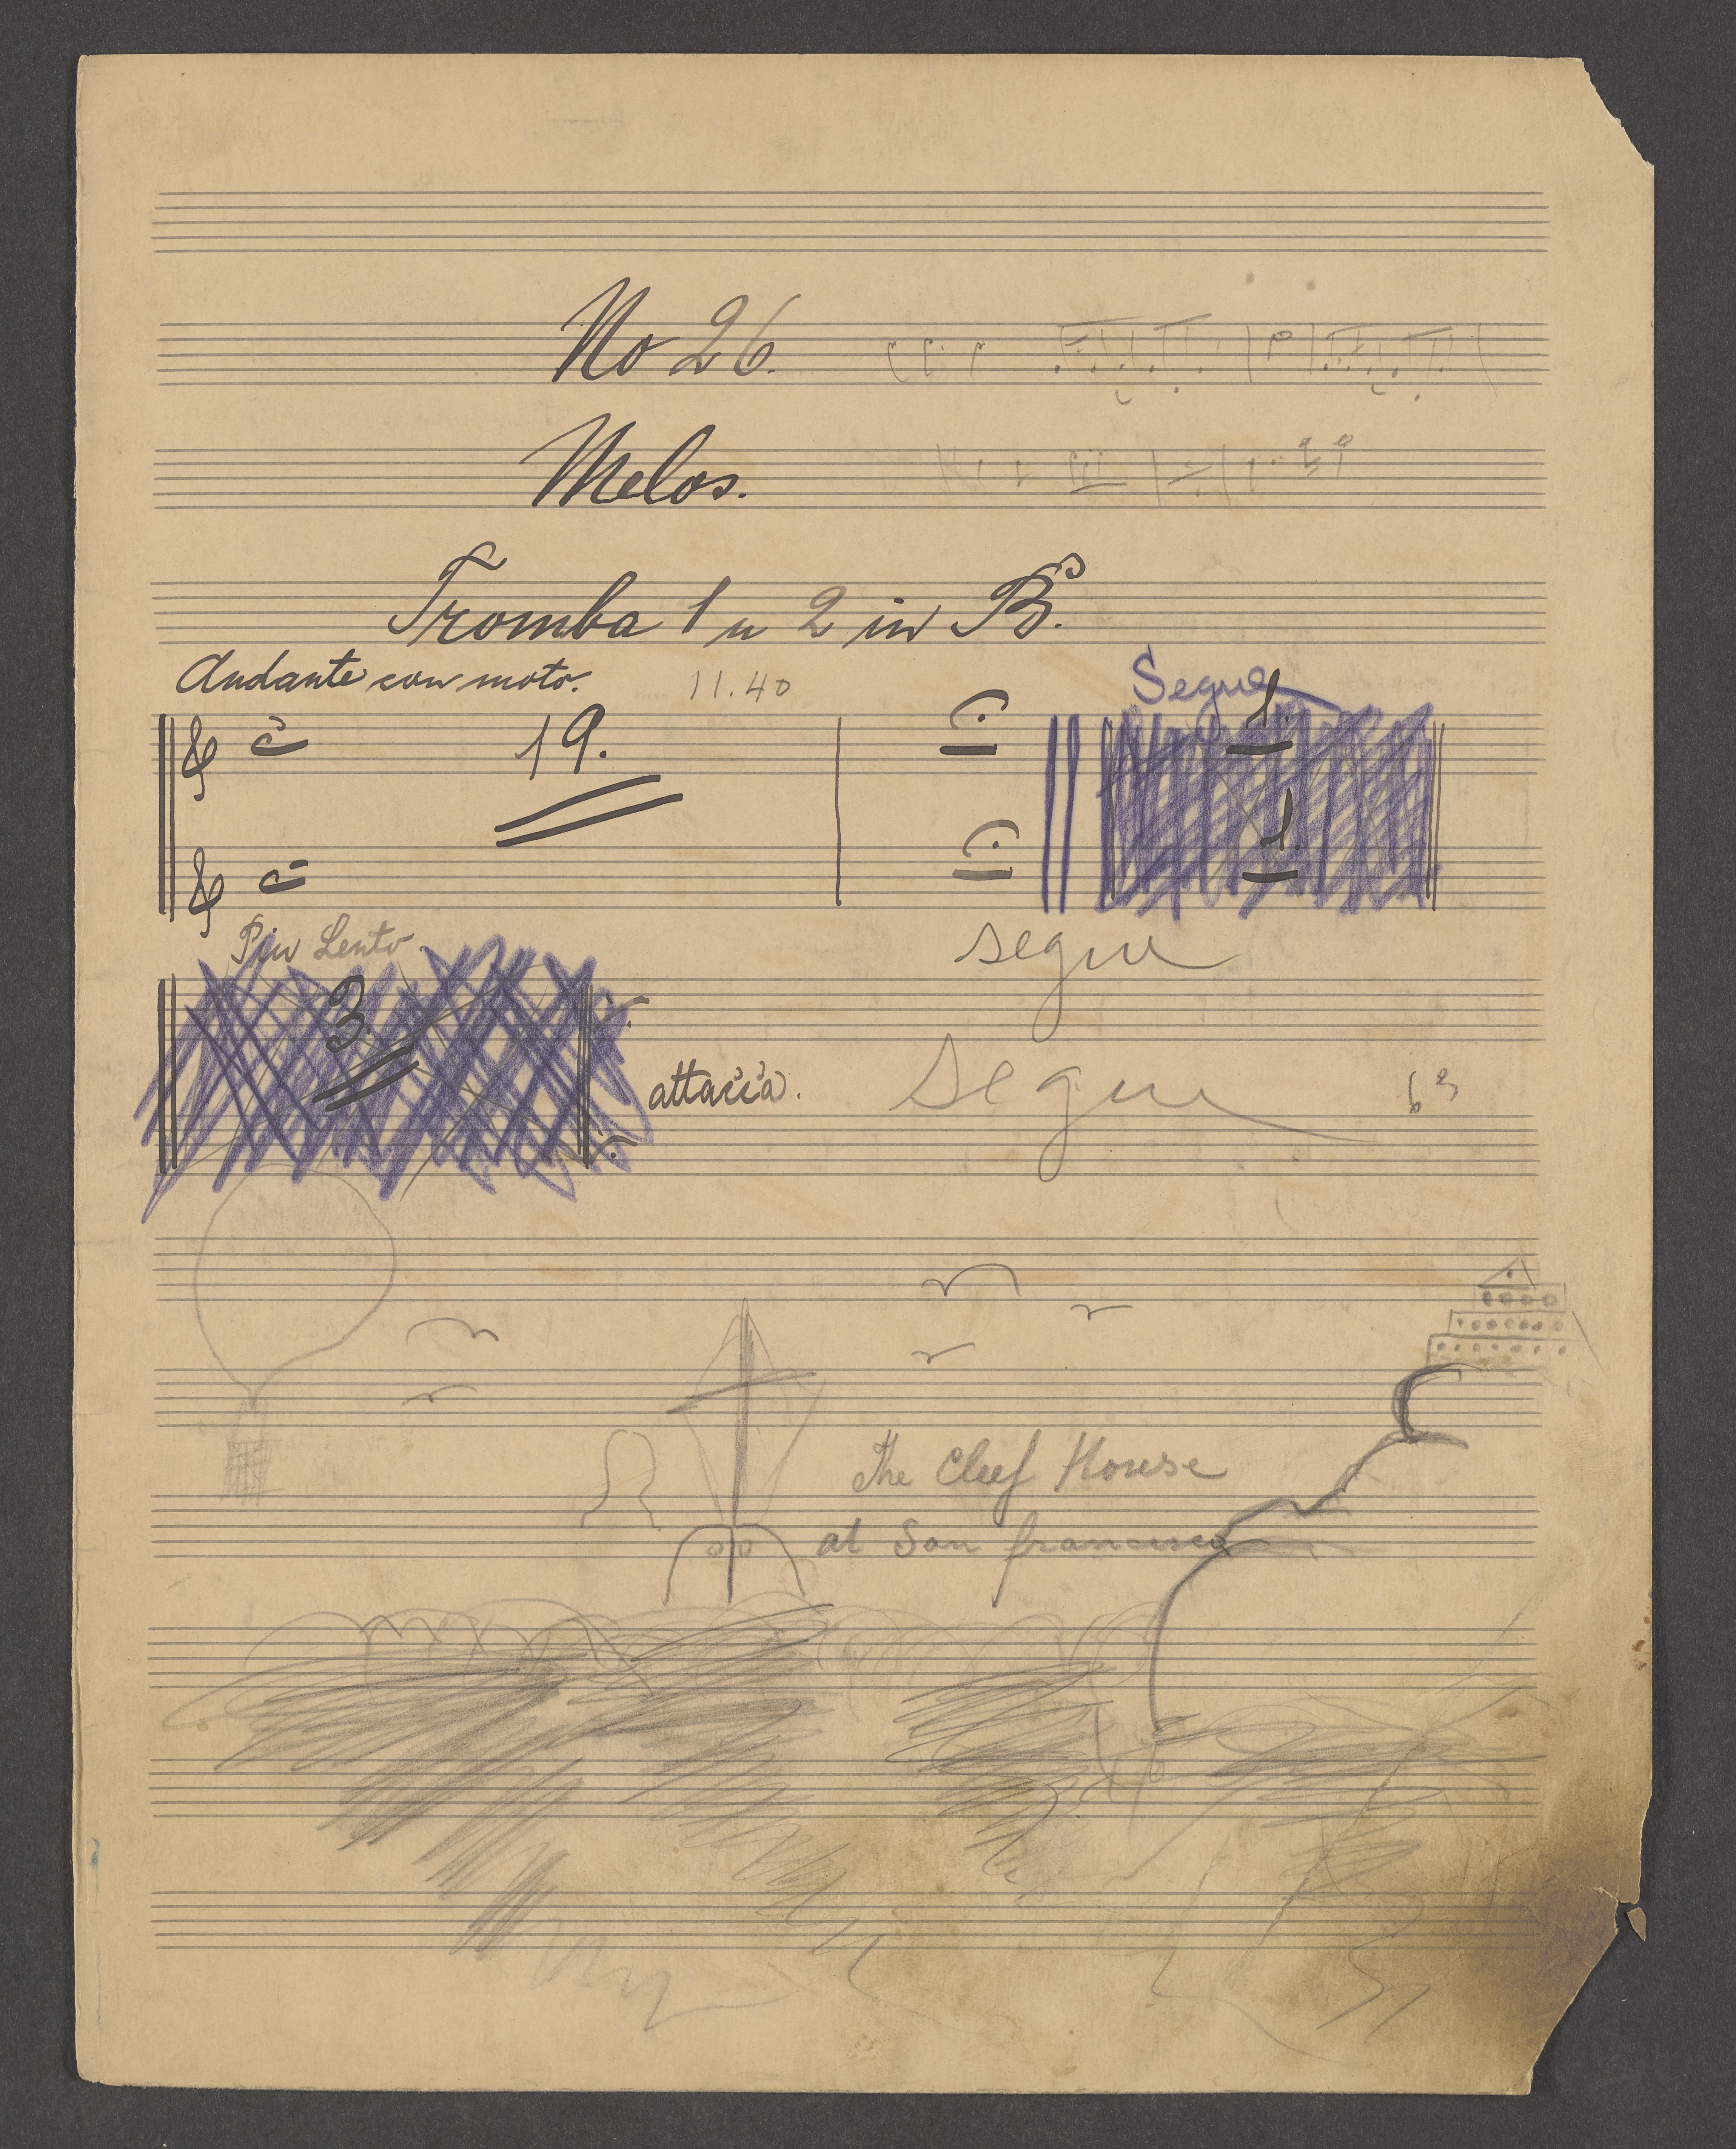 No 26.
Melos.
Tromba 1 u 2 in B.
Andante con moto. 11.40 Segue
19. 1.
1.
Piu Lento segue
3
attacca. Segue
The Cleef House
at San francisco